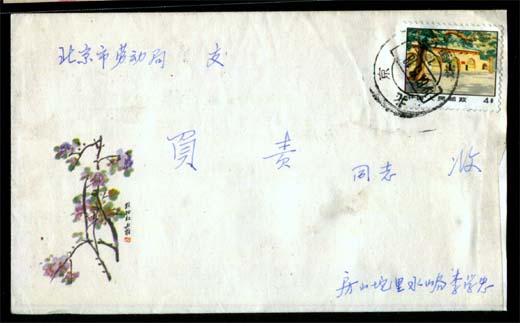 北京市劳动局 交
中国人民邮政 4分
北京
負 责 同志 收
房山坨里水山局李学忠